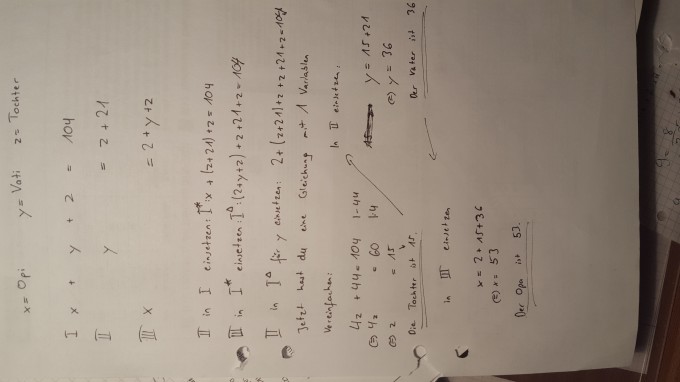 x = Opi   y = Vati   z = Tochter
I x + y + z = 104
II y = z + 21
III x = 2 + y + z
II in I einsetzen: I*: x + (z+21) + z = 104
III in I* einsetzen: I△: (2+y+z) + z+21+z = 104
II in I△ für y einsetzen: 2+(z+21)+z+z+21+z=104
Jetzt hast du eine Gleichung mit 1 Variablen
Vereinfachen:
4z + 44 = 104 |-44
(=) 4z = 60 |:4
(=) z = 15
Die Tochter ist 15.
In II einsetzen:
y = 15+21
(=) y = 36
Der Vater ist 36
In III einsetzen
x = 2 + 15 + 36
(=) x = 53
Der Opa ist 53.